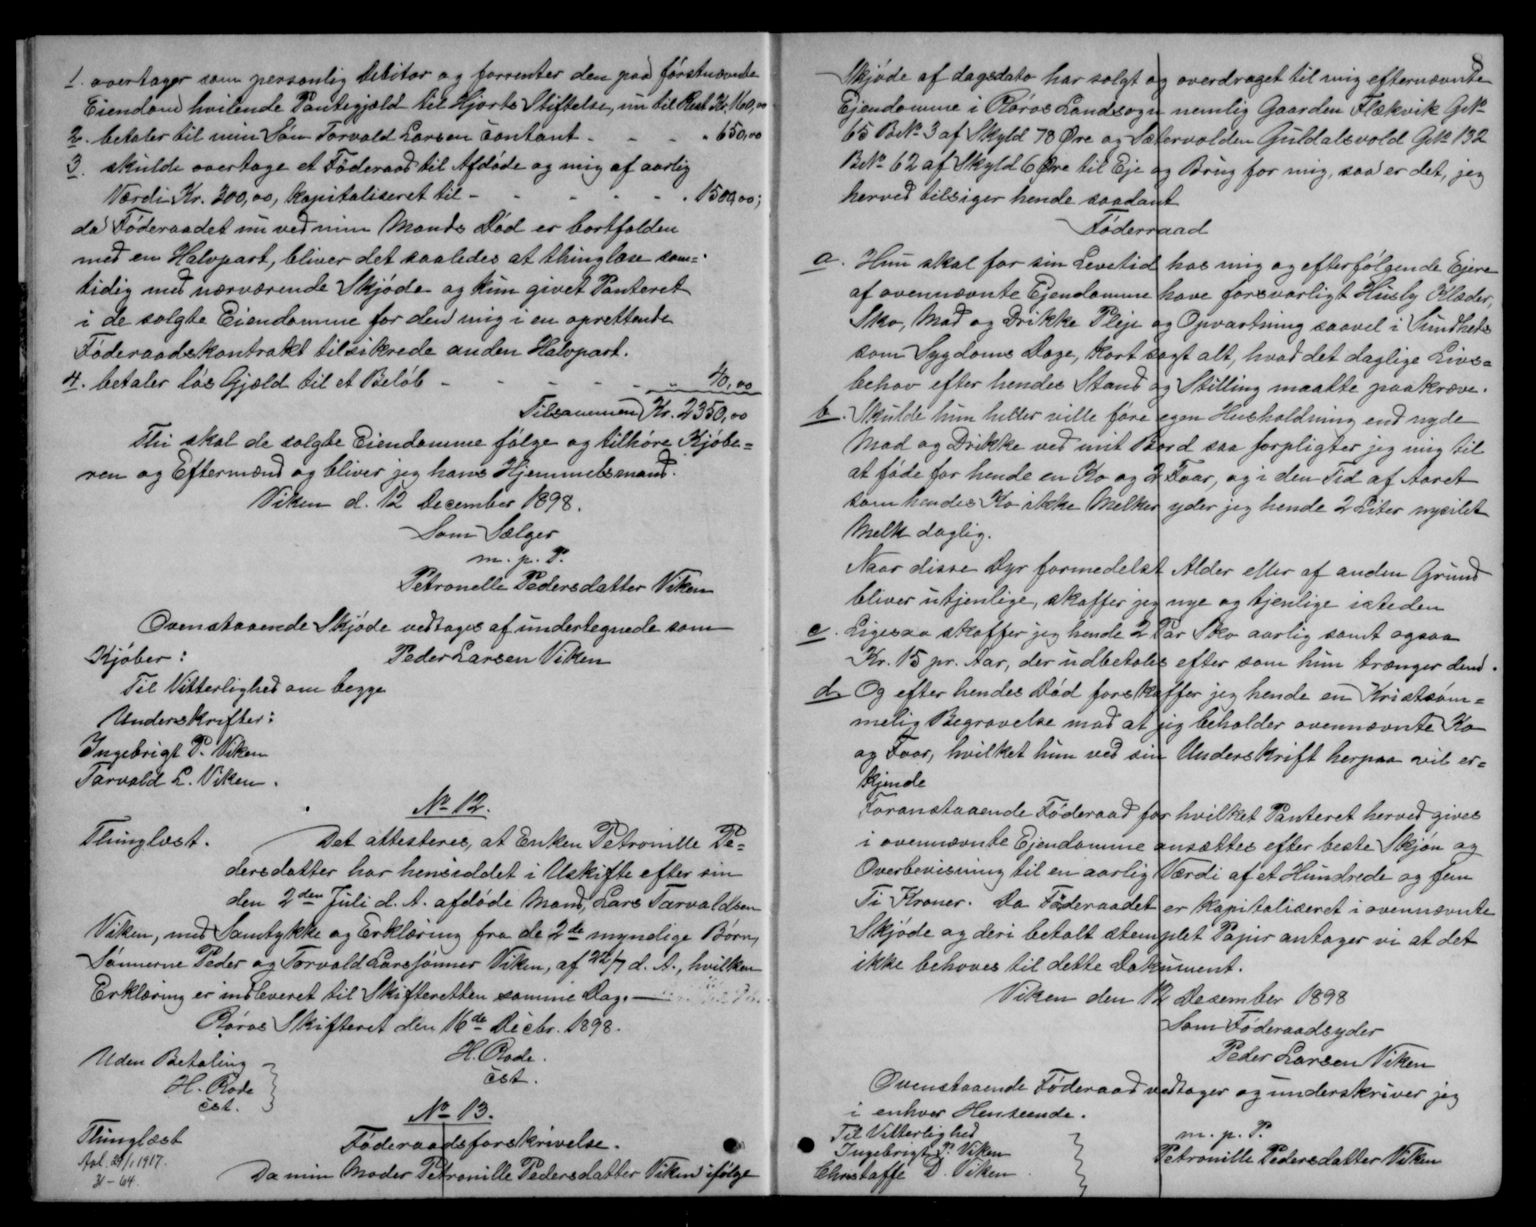 1. overtager som personlig Debitor og forrenter den paa førstnævnte
Eiendom hvilende Pantegjæld til Hjorts Stiftelse, nu til Rest Kr. 160,00
2. betaler til min Søn Torvald Larsen contant - - - " 650,00
3. skulde overtage et Føderaad til Afdøde og mig af aarlig
Værdi Kr. 300,00, kapitaliseret til - - - - - " 1500,00;
da Føderaadet nu ved min Mands Død er bortfalden
med en Halvpart, bliver det saaledes at thinglæse sam=
tidig med nærværende Skjøde og kun givet Panteret
i de solgte Eiendomme for den mig i en oprettende
Føderaadskontrakt tilsikrede anden Halvpart.
4. betaler løs Gjæld til et Beløb - - - - - " 40,00
Tilsammen Kr. 2350,00
Thi skal de solgte Eiendomme følge og tilhøre Kjøbe=
ren og Eftermænd og bliver jeg hans Hjemmelsmand.
Viken d. 12 December 1898.
Som Sælger
m. p. P.
Petronelle Pedersdatter Viken
Ovenstaaende Skjøde vedtages af undertegnede som
Kjøber: Peder Larsen Viken
Til Vitterlighed om begge
Underskrifter:
Ingebrigt P. Viken
Torvald L. Viken.
No 12.
Thinglæst. Det attesteres, at Enken Petronille Pe=
dersdatter har hensiddet i Uskifte efter sin
den 2den Juli d. A. afdøde Mand, Lars Torvaldsen
Viken, med Samtykke og Erklæring fra de 2de myndige Børn,
Sønnerne Peder og Torvald Larssønner Viken, af 22/7 d. A., hvilken
Erklæring er indleveret til Skifteretten samme Dag. —
Røros Skifteret den 16de Decbr. 1898.
Uden Betaling H. Rode.
H. Rode cst.
cst.
No 13.
Thinglæst Føderaadsforskrivelse.
Avl. 29/1 1917.
31-64. Da min Moder Petronille Pedersdatter Viken ifølge
8
Skjøde af dagsdato har solgt og overdraget til mig efternævnte
Ejendomme i Røros Landsogn nemlig Gaarden Flækvik GNo
65 BNo 3 af Skyld 78 Øre og Sætervolden Guldalsvold GNo 132
BNo 62 af Skyld 6 Øre til Eje og Brug for mig, saa er det, jeg
herved tilsiger hende saadant
Føderraad
a. Hun skal for sin Levetid hos mig og efterfølgende Ejere
af ovennævnte Ejendomme have forsvarligt Husly Klæder,
Sko, Mad og Drikke Pleje og Opvartning saavel i Sundheds
som Sygdoms Dage, kort sagt alt, hvad det daglige Livs=
behov efter hendes Stand og Stilling maatte paakræve.
b. Skulde hun heller ville føre egen Husholdning end nyde
Mad og Drikke ved mit Bord saa forpligter jeg mig til
at føde for hende en Ko og 2 Faar, og i den Tid af Aaret
som hendes Ko ikke Melker yder jeg hende 2 Liter nysilet
Melk daglig.
Naar disse Dyr formedelst Alder eller af anden Grund
bliver utjenlige, skaffer jeg nye og tjenlige isteden
c. Ligesaa skaffer jeg hende 2 Par Sko aarlig samt ogsaa
Kr. 15 pr. Aar, der udbetales efter som hun trænger dem.
d. Og efter hendes Død forskaffer jeg hende en Kristsøm=
melig Begravelse mod at jeg beholder ovennævnte Ko
og Faar, hvilket hun ved sin Underskrift herpaa vil er=
kjende
Foranstaaende Føderaad for hvilket Panteret herved gives
i ovennævnte Ejendomme ansættes efter beste Skjøn og
Overbevisning til en aarlig Værdi af et Hundrede og fem
Ti Kroner. Da Føderaadet er kapitaliseret i ovennævnte
Skjøde og deri betalt stemplet Papir antager vi at det
ikke behoves til dette Dokument.
Viken den 12 Desember 1898
Som Føderaadsyder
Peder Larsen Viken
Ovenstaaende Føderaad vedtager og underskriver jeg
i enhver Henseende.
Til Vitterlighed m. p. P.
Ingebrigt P. Viken Petronille Pedersdatter Viken
Christoffe D. Viken